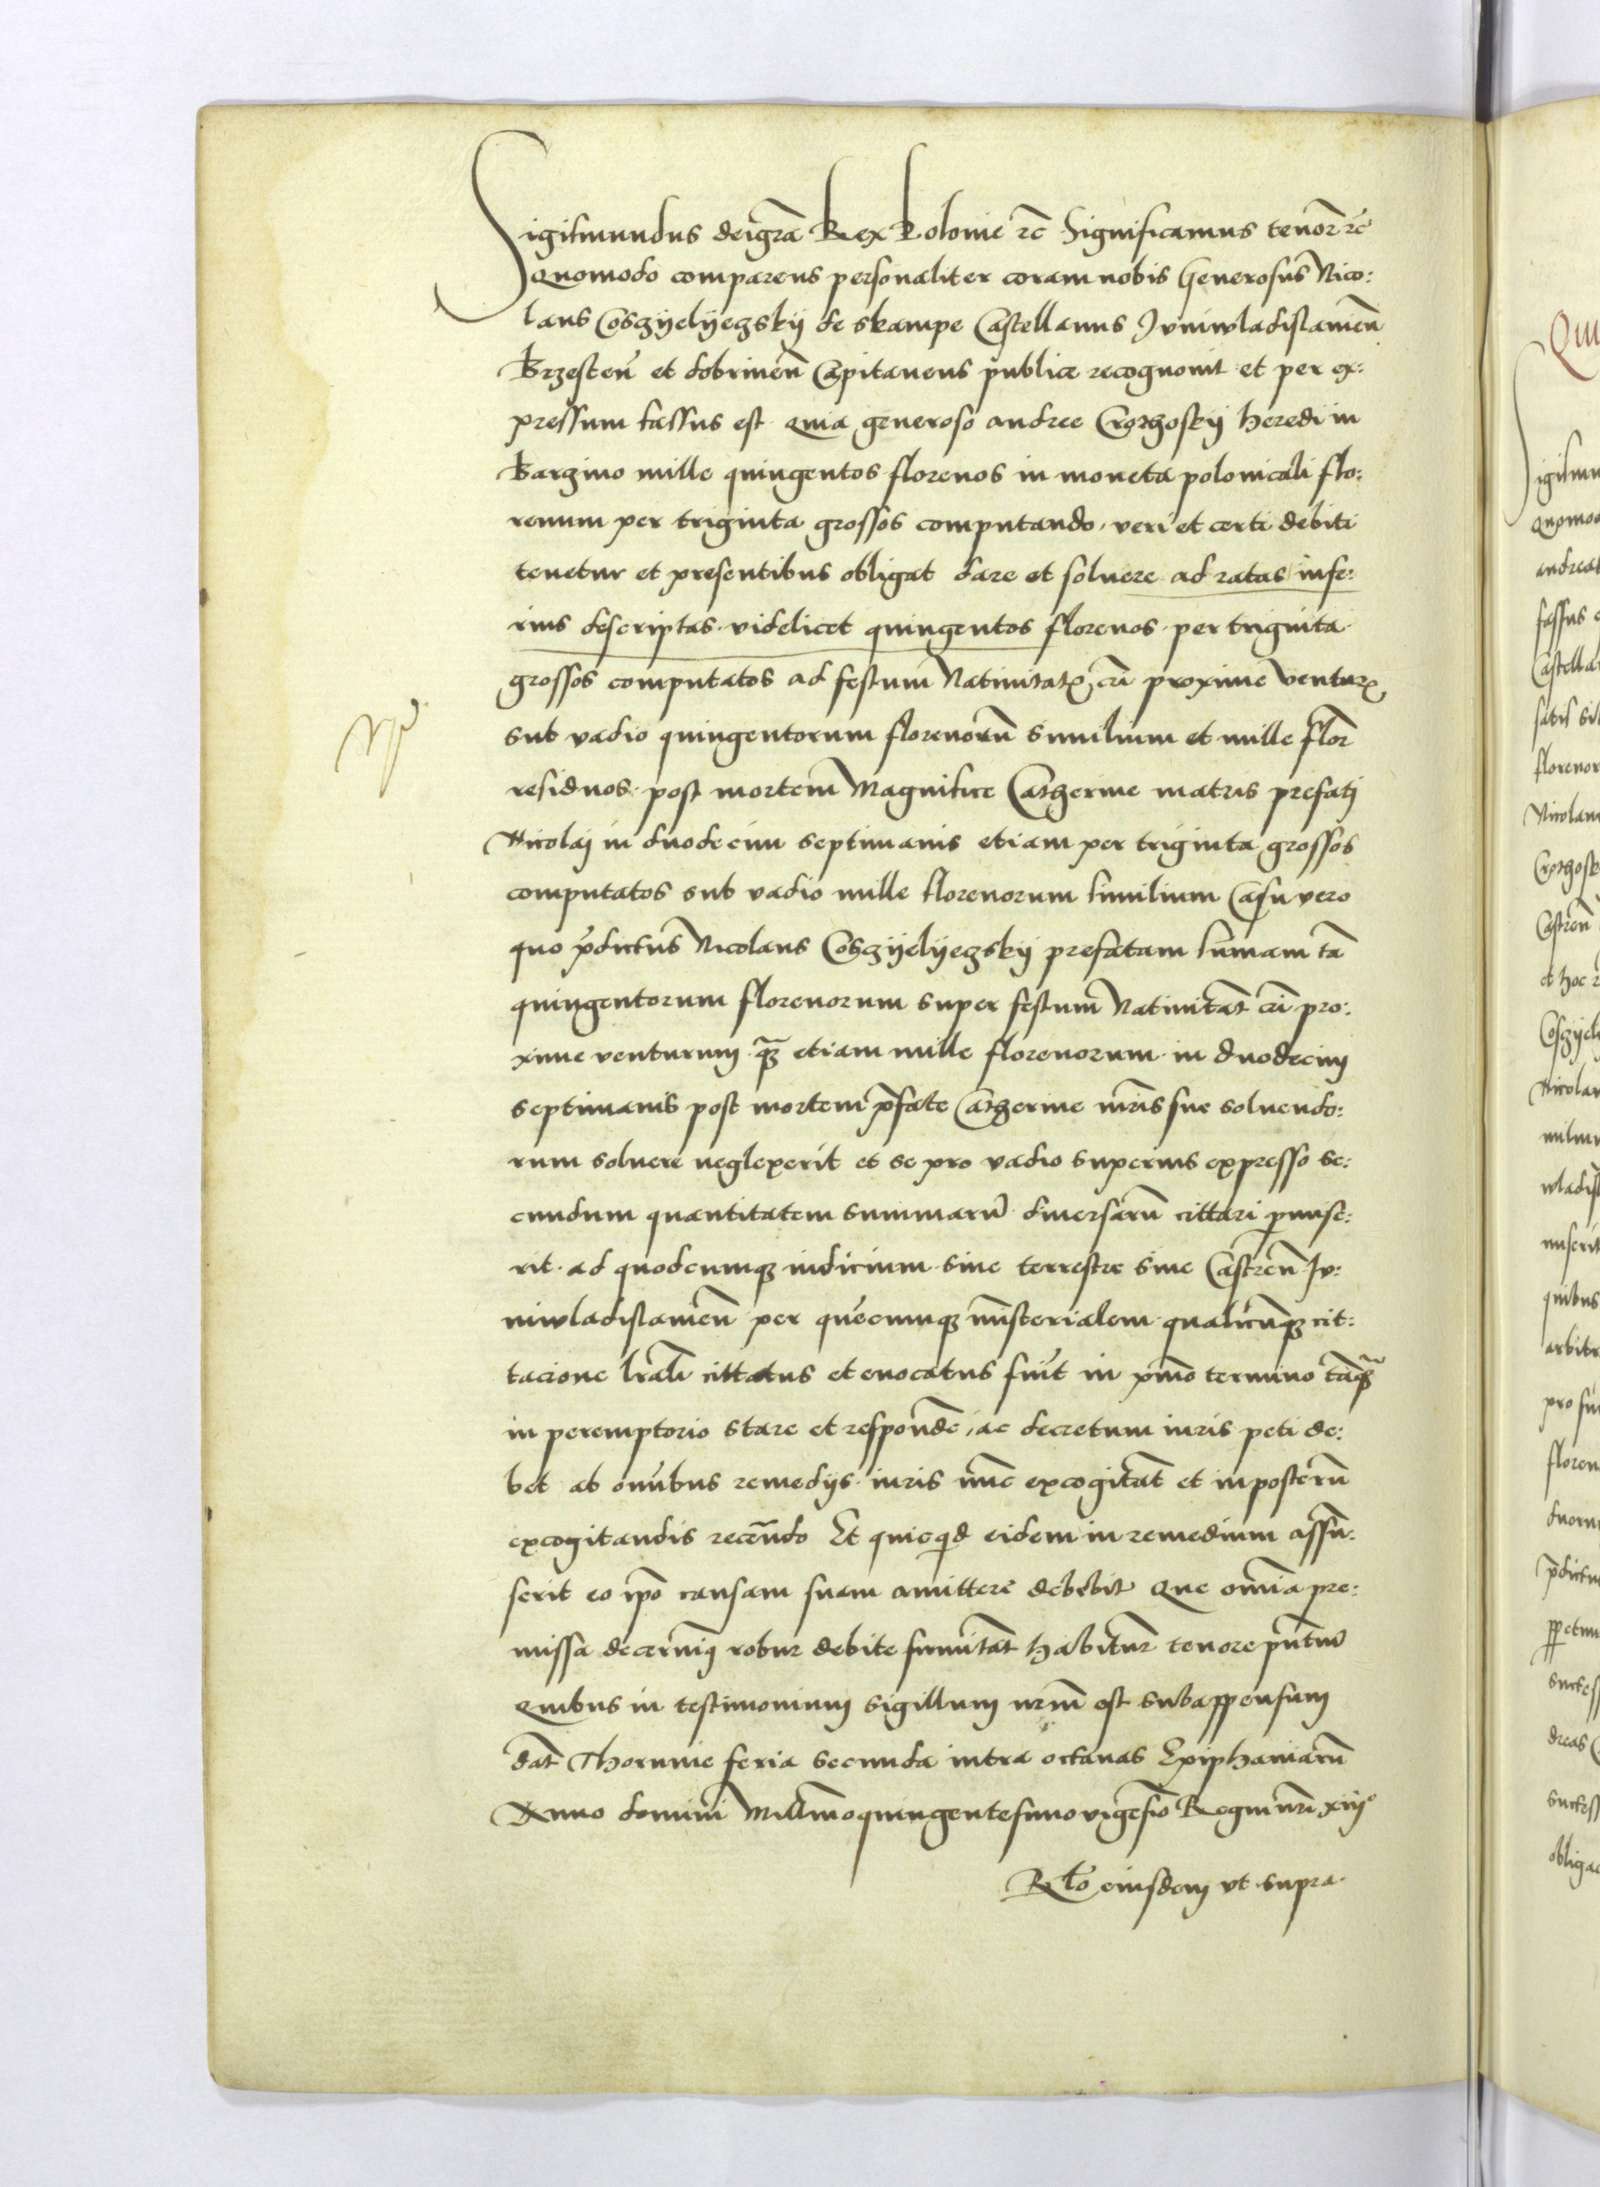 Sigismundus dei grã Rex Polonie rc̃ Significamus tenor̃ rc̃
Quomodo comparens personaliter coram nobis Generosus Nico:
laus Cosczyelyeczskÿ de skampe Castellanus Juniwladislavieñ
Brzesteñ et dobrineñ Capitaneus publice recognovit et per ex:
pressum fassus est quia generoso andree Crothoskÿ heredi in
Bargino mille quingentos florenos in moneta polonicali flo:
renum per triginta grossos computando, veri et certi debiti
tenetur et presentibus obligat dare et soluere ad ratas infe:
rius descriptas videlicet quingentos florenos per triginta
grossos computatos ad festum Natiuitatꝭ cri proxime venturꝭ
sub vadio quingentorum florenorũ similium et mille flor̃
residuos post mortem Magnifice Catherine matris prefatj
Nicolaj in duodecim septimanis etiam per triginta grossos
computatos sub vadio mille florenorum similium Casu vero
quo p̃dictus Nicolaus Cosczyelyeczskÿ prefatam sum̃am tã
quingentorum florenorum super festum Natiuitat̃ cri pro:
xime venturum qꝫ̃ etiam mille florenorum in duodecim
septimanis post mortem p̃fate Catherine mr̃is sue soluendo:
rum soluere neglexerit et se pro vadio superius expresso se:
cundum quantitatem summarũ diuersarũ cittari permise:
rit ad quodcumqꝫ iudicium siue terrestre siue Castreñ Ju:
niwladislavieñ per quẽcumqꝫ mĩsterialem qualicũqꝫ cit:
tacione lr̃ali cittatus et euocatus fuit̃ in p̃mo termino tãqꝫ̃
in peremptorio stare et respondẽ, ac decretum iuris peti de:
bet ab om̃ibus remedÿs iuris nũc excogitat̃ et in posterũ
excogitandis recedẽdo Et quicqd eidem in remedium assũ:
serit eo ip̃o causam suam amittere debebit Que om̃ia pre:
missa decernimꝰ robur debite firmitat̃ habitur̃ tenore p̃ntiũ
Quibus in testimonium sigillum nr̃m est subappensum
dat̃ Thorunie feria secunda intra octauas Epiphaniarũ
Anno domini Millm̃o quingentesimo vigesĩo Regni nr̃i xiijᵒ
Rl̃o eiusdem vt supra